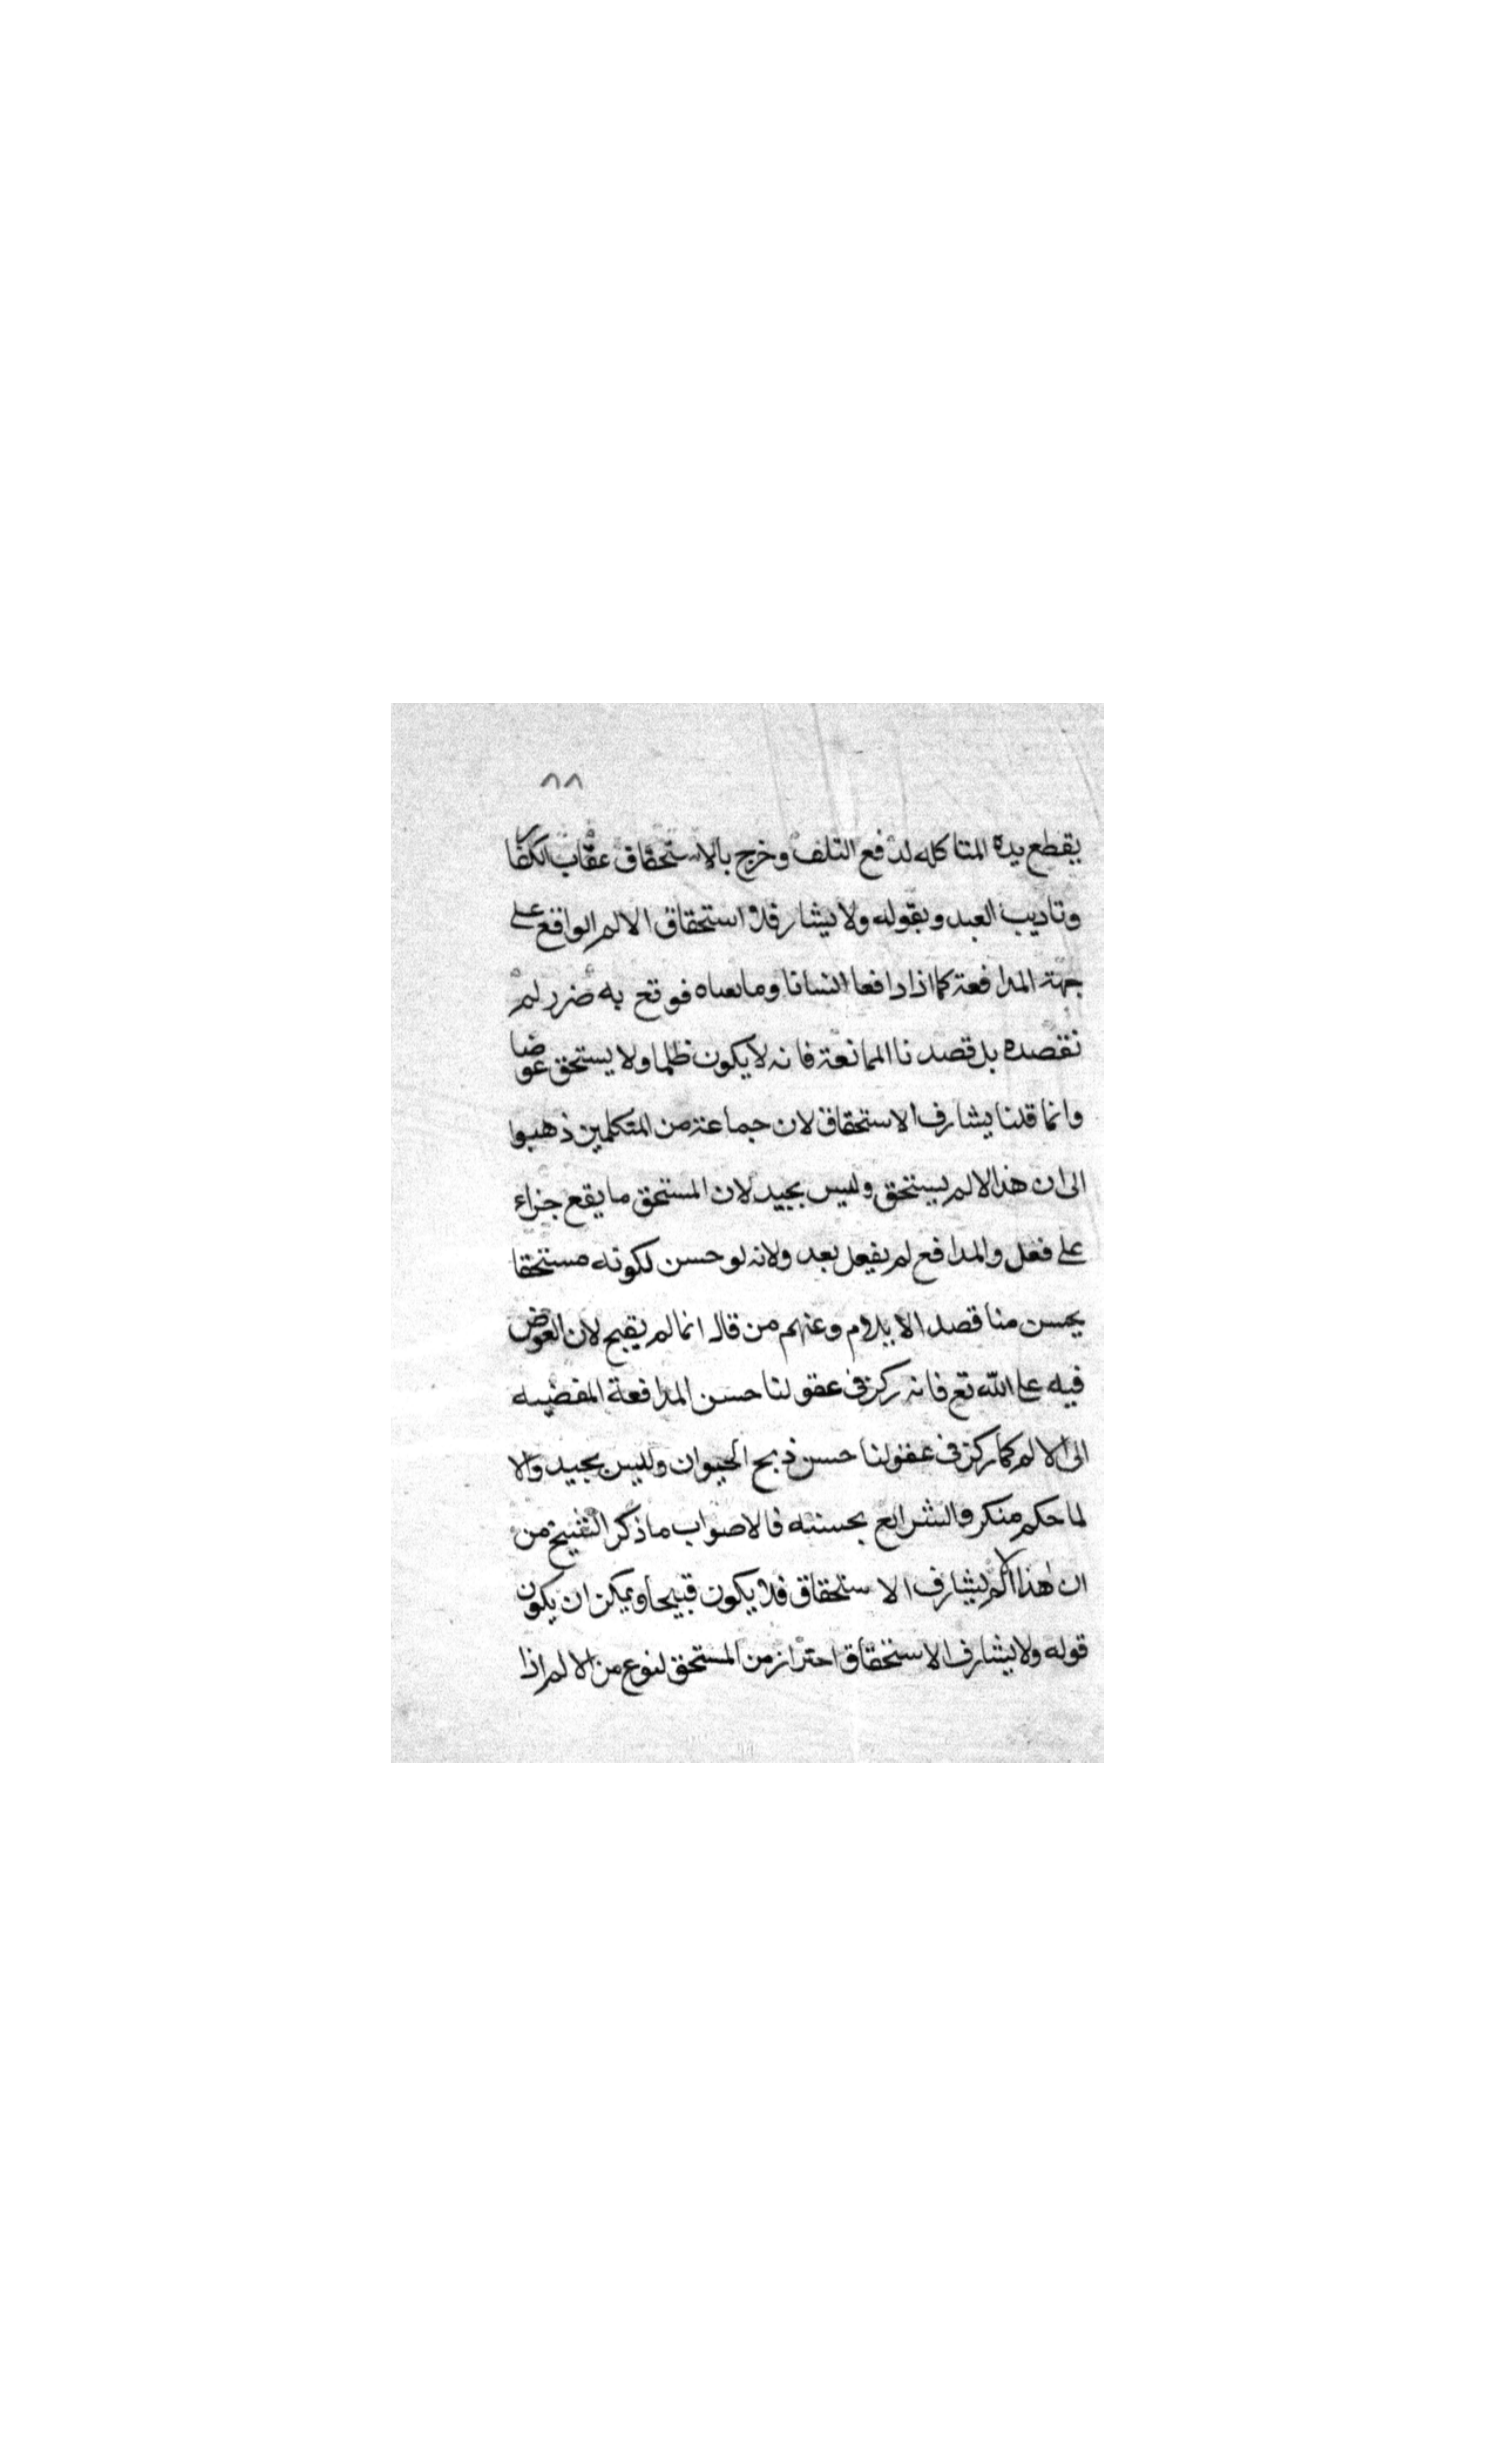 ٨٨
يقطع يده المتاكله لدفع التلف وخرج بالاستحقاق عقاب الكفار
وتاديب العبد وبقوله ولا يشارف الاستحقاق الالم الواقع على
جهة المدافعة كما اذا دافعا انسانا ومانعناه فوقع به ضرر لم
نقصده بل قصدنا الممانعة فانه لا يكون ظلما ولا يستحق عوضا
وانما قلنا يشارف الاستحقاق لان جماعة من المتكلمين ذهبوا
الى ان هذا الالم يستحق وليس بجيد لان المستحق ما يقع جزاء
على فعل والمدافع لم يفعل بعد ولانه لو حسن لكونه مستحقا
يحسن منا قصد الايلام وعنهم من قال انما لم يقبح لان العوض
فيه على الله تع فانه ركز في عقولنا حسن المدافعة المفضيه
الى الالم كما ركز في عقولنا حسن ذبح الحيوان وليس بجيد والا
لما حكم منكر والشرايع بحسنه فالاصواب ما ذكر الشيخ من
ان هذا الالم يشارف الاستحقاق فلا يكون قبيحا ويمكن ان يكون
قوله ولا يشارف الاستحقاق احتراز من المستحق لنوع من الالم اذا